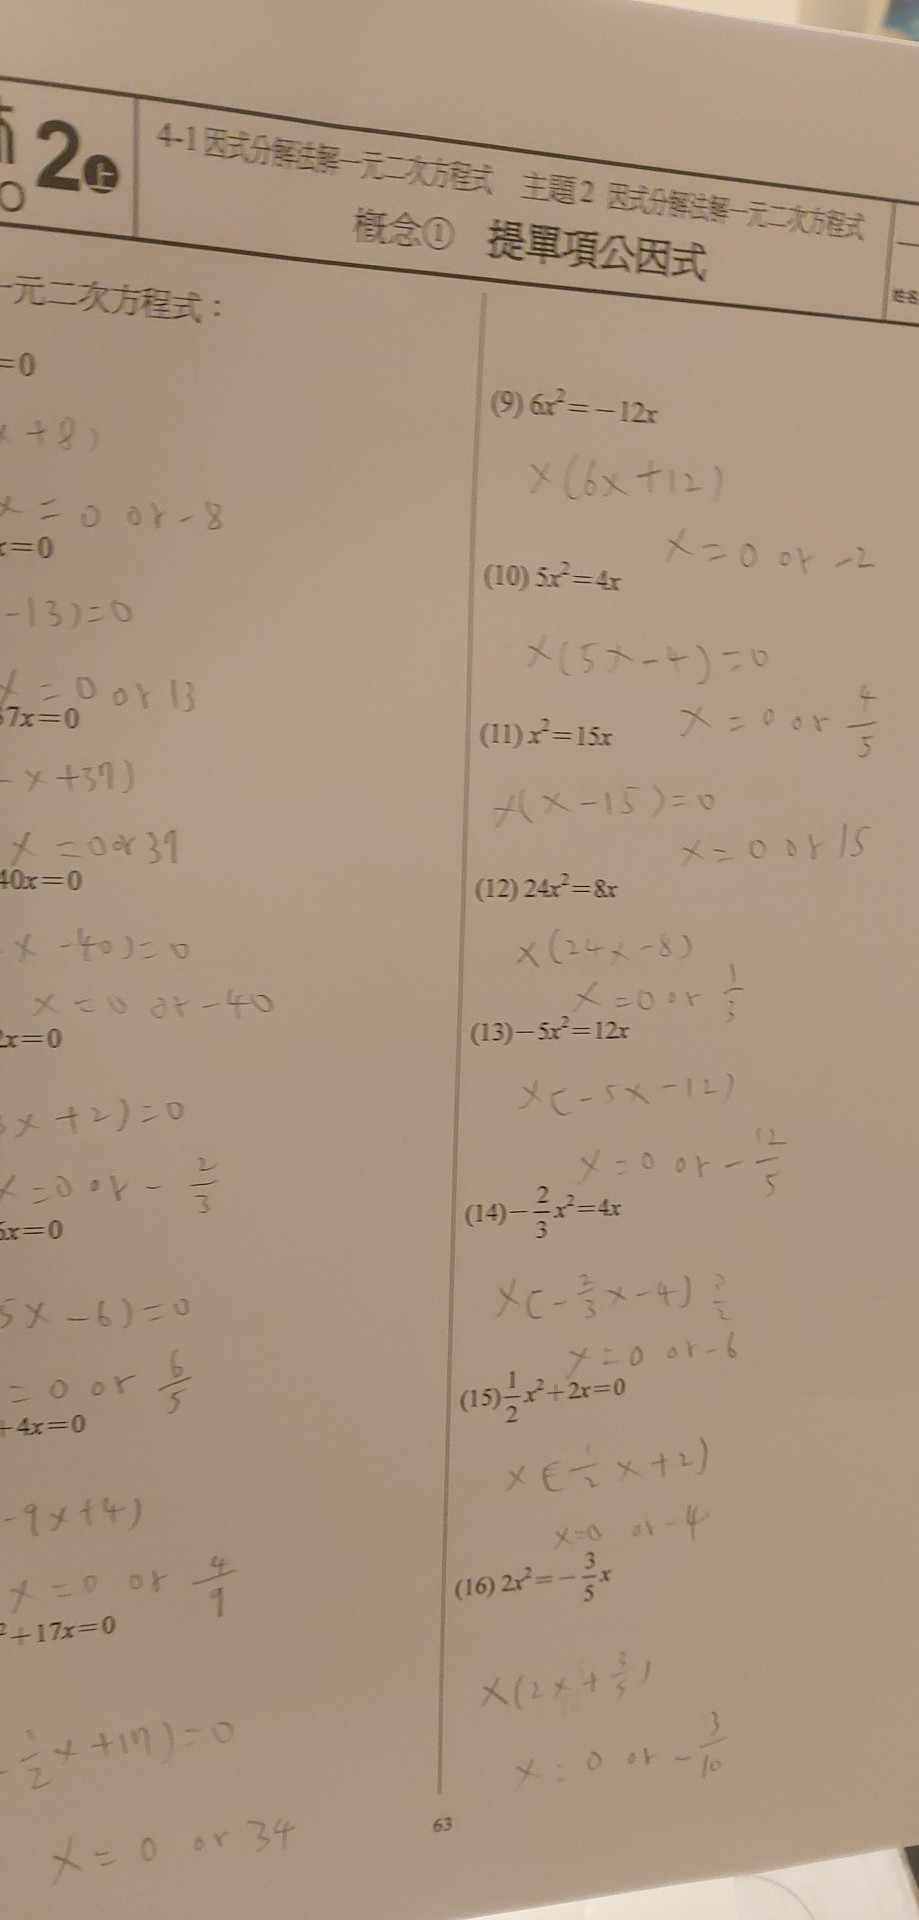 2上
4-1 因式分解法解一元二次方程式 主題2 因式分解法解一元二次方程式
概念① 提單項公因式
姓名
一元二次方程式：
=0
x+8)
x=0 or -8
x=0
-13)=0
x=0 or 13
37x=0
-x+37)
x=0 or 37
40x=0
x-40)=0
x=0 or -40
2x=0
3x+2)=0
x=0 or -2/3
6x=0
5x-6)=0
=0 or 6/5
+4x=0
-9x+4)
x=0 or 4/9
²+17x=0
1/2x+17)=0
x=0 or 34
(9) 6x²=-12x
x(6x+12)
x=0 or -2
(10) 5x²=4x
x(5x-4)=0
x=0 or 4/5
(11) x²=15x
x(x-15)=0
x=0 or 15
(12) 24x²=8x
x(24x-8)
x=0 or 1/3
(13) -5x²=12x
x(-5x-12)
x=0 or -12/5
(14) -2/3x²=4x
x(-2/3x-4) 3/2
x=0 or -6
(15) 1/2x²+2x=0
x(1/2x+2)
x=0 or -4
(16) 2x²=-3/5x
x(2x+3/5)
x=0 or -3/10
63